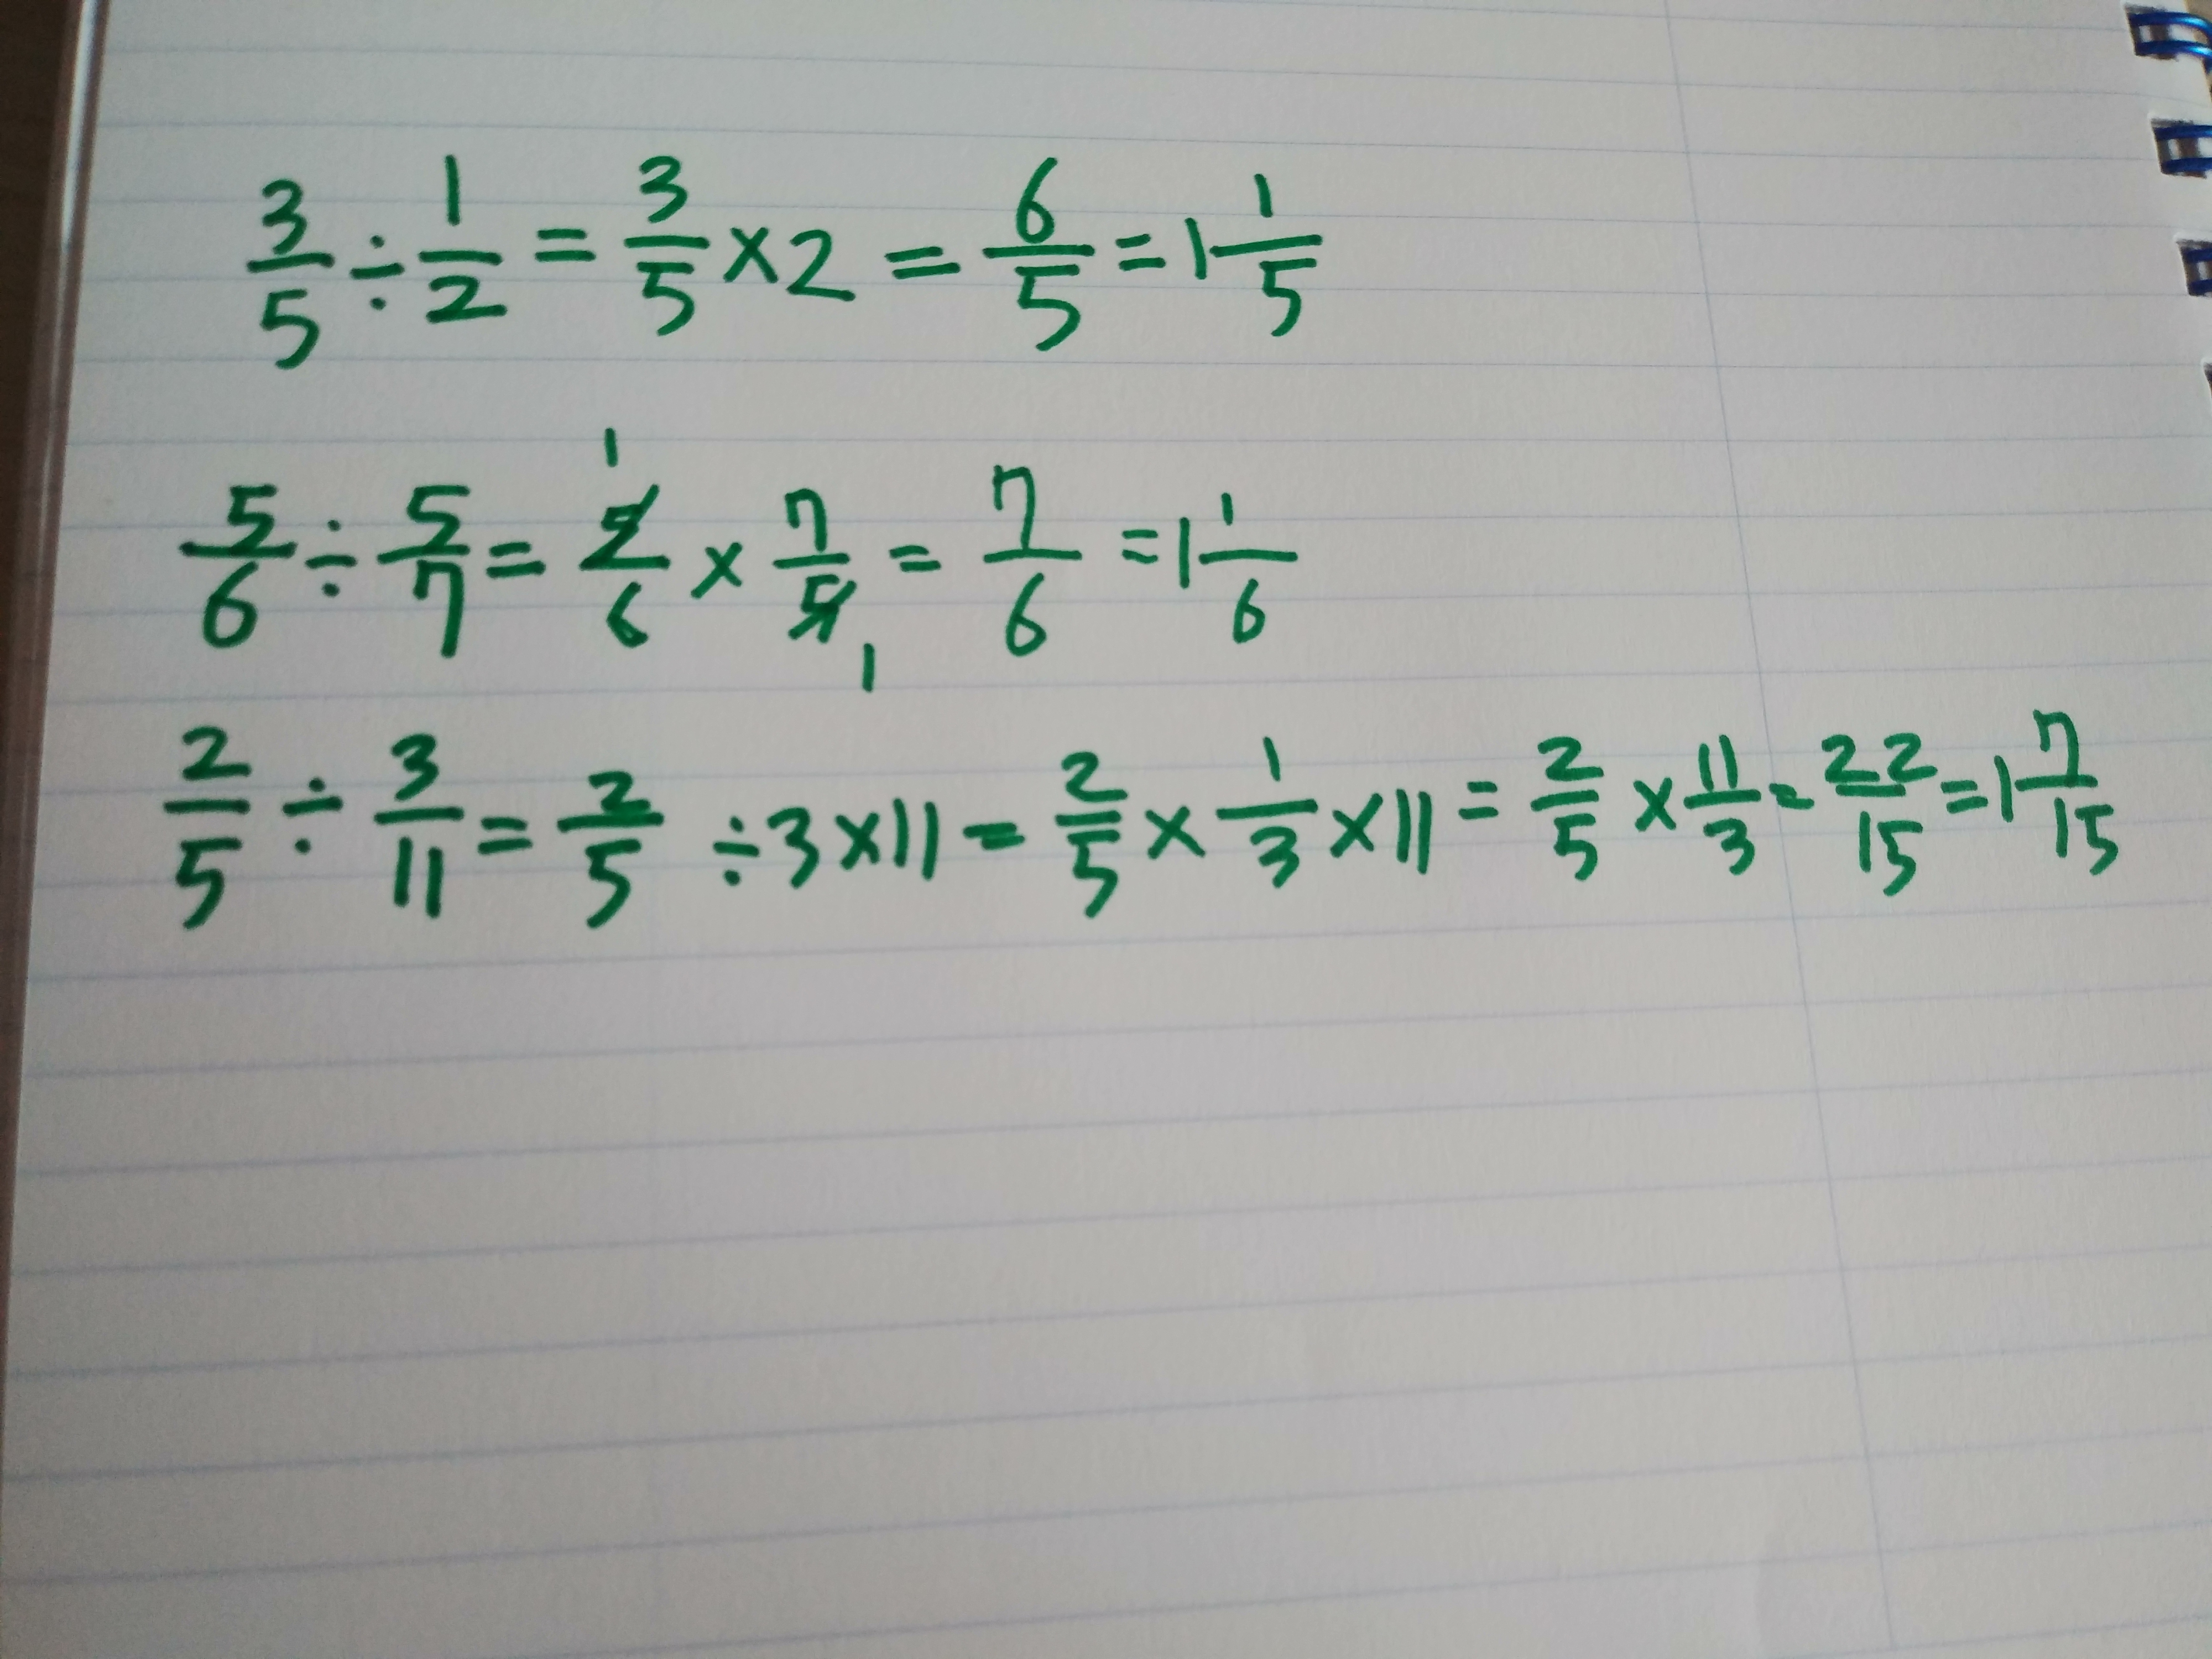 3/5 ÷ 1/2 = 3/5 × 2 = 6/5 = 1 1/5
5/6 ÷ 5/7 = 5/6 1 × 7/5 1 = 7/6 = 1 1/6
2/5 ÷ 3/11 = 2/5 ÷ 3 × 11 = 2/5 × 1/3 × 11 = 2/5 × 11/3 = 22/15 = 1 7/15